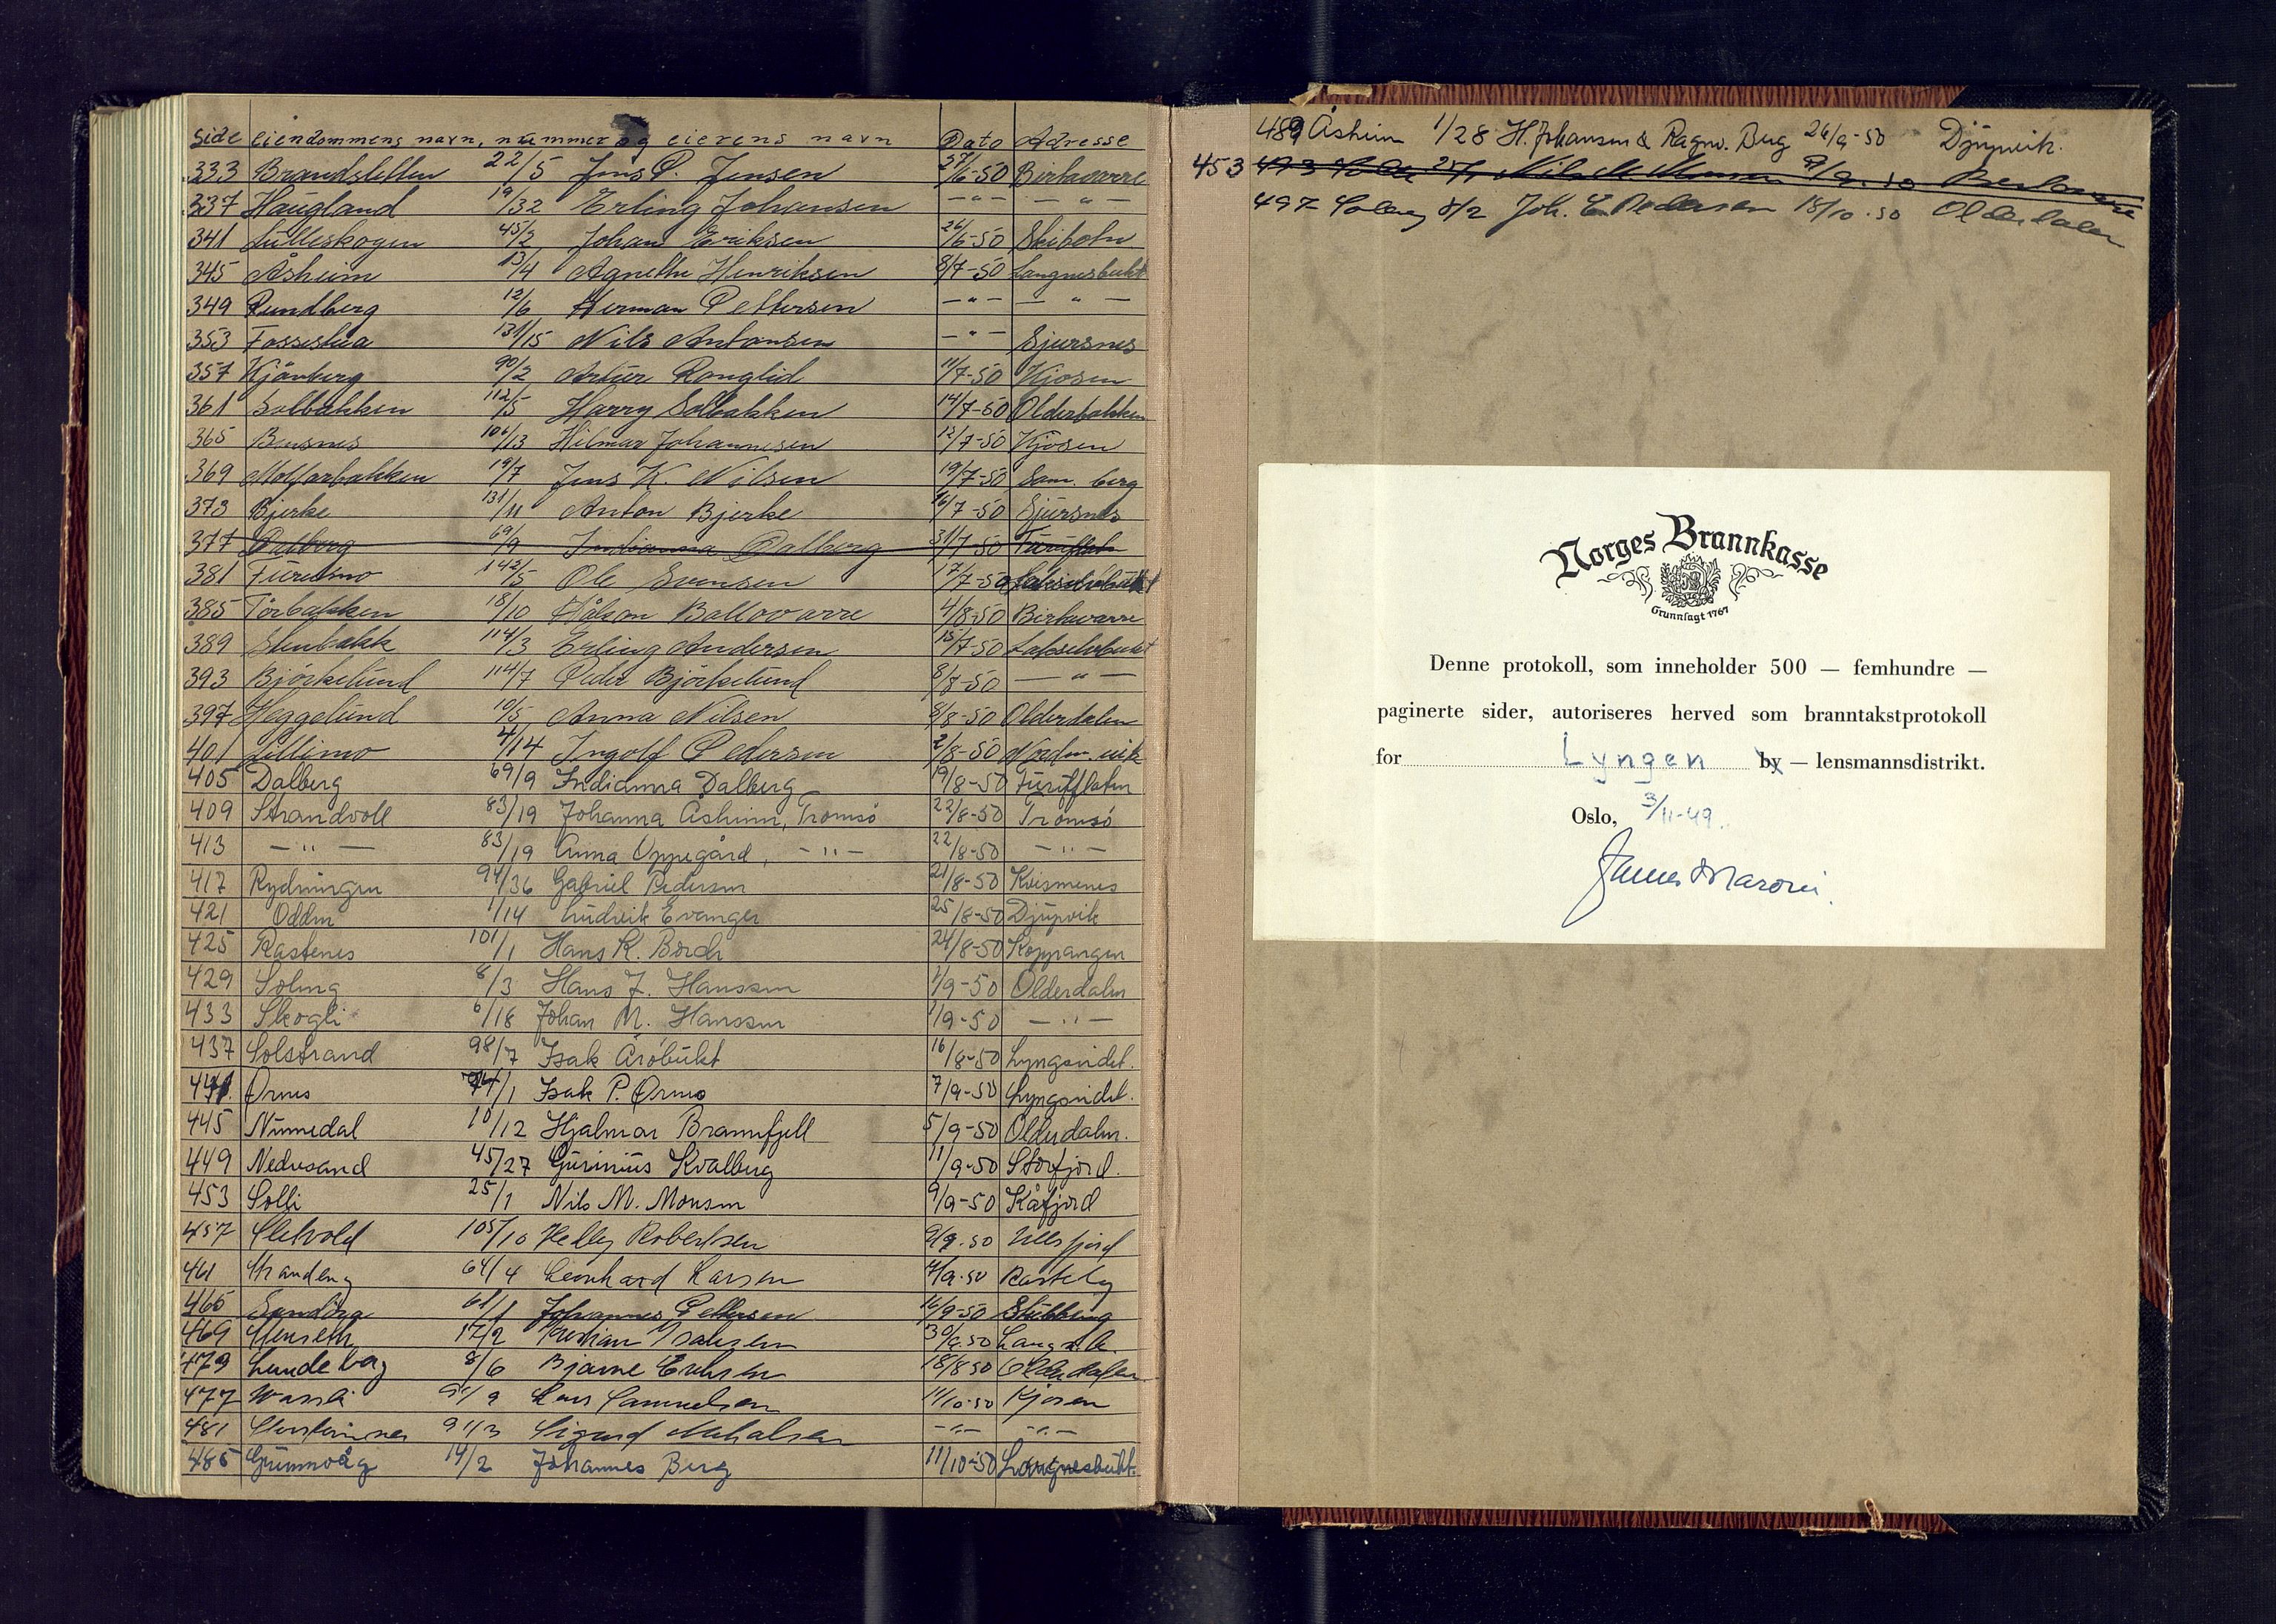 Side Eiendommens navn, nummer og eierens navn Dato Adresse
333 Brandsletten 22/5 Jens P. Jensen 27/6-50 Birtavarre
337 Haugland 19/32 Erling Johansen -"- -"-
341 Lilleskogen 45/2 Johan Eriksen 26/6-50 Skibotn
345 Åsheim 13/4 Agnethe Henriksen 8/7-50 Langnesbukt
349 Rundberg 12/6 Herman Pettersen -"- -"-
353 Fossestua 131/15 Nils Antonsen -"- Sjursnes
357 Kjånberg 90/2 Artur Ronglid 11/7-50 Kjosen
361 Solbakken 112/5 Harry Solbakken 14/7-50 Olderbakken
365 Bensnes 106/13 Hilmar Johannesen 12/7-50 Kjosen
369 Molfarbakken 19/7 Jens K. Nilsen 19/7-50 Sam. berg
373 Bjerke 131/11 Anton Bjerke 16/7-50 Sjursnes
377 Dalberg 69/9 Indianna Dalberg 31/7-50 Furuflaten
381 Furumo 142/5 Ole Svensen 17/7-50 Lakselvbukt
385 Torbakken 18/10 Håkon Ballovarre 4/8-50 Birtavarre
389 Stenbakk 114/3 Erling Andersen 15/7-50 Lakselvbukt
393 Björkelund 114/7 Peder Björkelund 8/8-50 -"-
397 Heggelund 10/5 Anna Nilsen 8/8-50 Olderdalen
401 Lillimo 4/14 Ingolf Pedersen 2/8-50 Nordm. vik
405 Dalberg 69/9 Indianna Dalberg 19/8-50 Furufflaten
409 Strandvoll 83/19 Johanna Åsheim, Tromsö 22/8-50 Tromsö
413 -"- 83/19 Anna Oppegård, -"- 22/8-50 -"-
417 Rydningen 94/36 Gabriel Pedersen 21/8-50 Kvismenes
421 Odden 1/14 Ludvik Evanger 25/8-50 Djupvik
425 Rastenes 101/1 Hans K. Borch 24/8-50 Koppangen
429 Soleng 8/3 Hans J. Hanssen 1/9-50 Olderdalen
433 Skogli 6/18 Johan M. Hanssen 1/9-50 -"-
437 Solstrand 98/7 Isak Åröbukt 16/8-50 Lyngseidet.
441. Ørnes 74/1 Isak P. Ørnes 7/9-50 Lyngseidet.
445 Nimmedal 10/12 Hjalmar Brannfjell 5/9-50 Olderdalen.
449 Nedresand 45/27 Gurinius Kvalberg 11/9-50 Storfjord.
453 Solli 25/1 Nils M. Monsen 9/9-50 Kåfjord
457 Sletvold 105/10 Helby Robertsen 9/9.50 Ullsfjord
461 Strandeng 64/4 Leonhard Larsen 7/9.50 Rasteby
465 61/1 Johannes Pettersen 16/9-50 Stubbeng
469 17/2 30/9.50 Langn.b.
479 Lundeberg 8/6 Bjarne Eriksen 18/8 50 Olderdalen
477 9 Lars Samuelsen 11/10-50 Kjosen
481 91/3 Sigurd Mikalsen -"- -"-
485 Grunnvåg 14/2 Johannes Berg 11/10-50 Langnesbukt.
489 Åsheim 1/28 H. Johansen & Ragnv. Berg 26/9-50 Djupvik.
453 473 Solli 25/1 Nils M. Monsen 9/9.50 Birtavarre
497 Soleng 8/2 Joh. E. Pedersen 18/10.50 Olderdalen
Norges Brannkasse
Grunnlagt 1767
Denne protokoll, som inneholder 500 — femhundre —
paginerte sider, autoriseres herved som branntakstprotokoll
for Lyngen by — lensmannsdistrikt.
Oslo, 3/11-49.